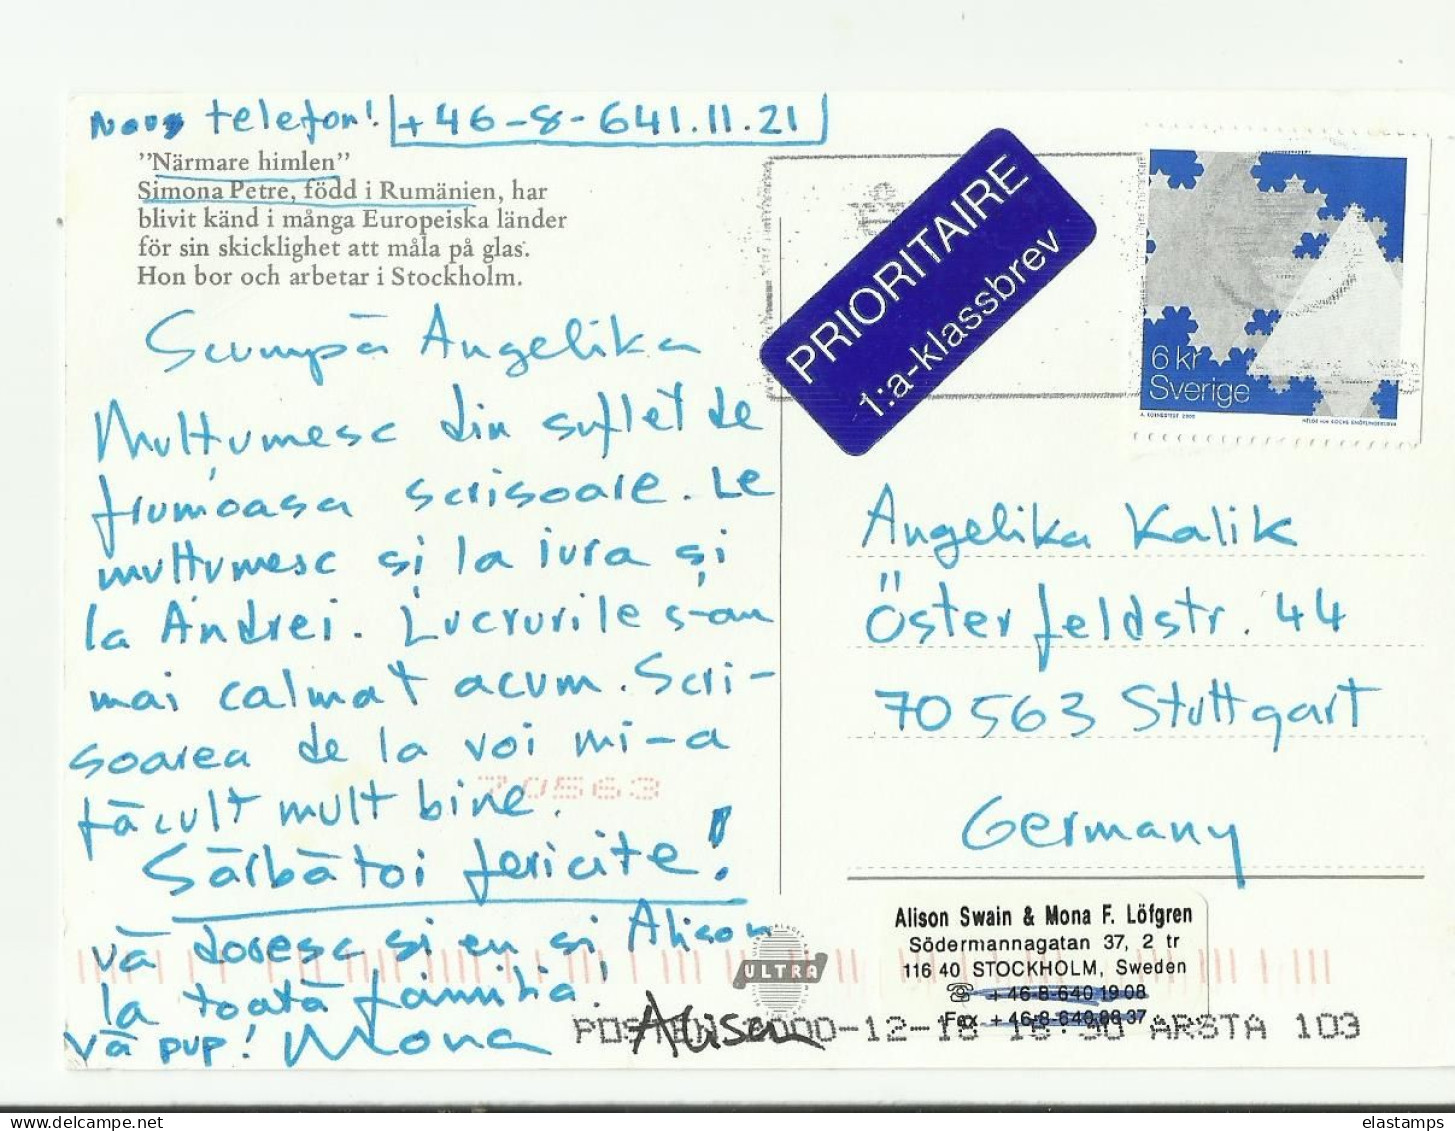 Nou telefon! +46-8-641.11.21
"Närmare himlen"
Simona Petre, född i Rumänien, har
blivit känd i många Europeiska länder
för sin skicklighet att måla på glas.
Hon bor och arbetar i Stockholm.
Scumpă Angelika
Mulțumesc din suflet de
frumoasa scrisoare. Le
multumesc și la iura și
la Andrei. Lucrurile s-au
mai calmat acum. Scri-
soarea de la voi mi-a
făcult mult bine.
Sărbătoi fericite!
vă doresc si eu și Alison
la toată familia!
Vă pup! Mona
Alison
70563
PRIORITAIRE
1:a-klassbrev
6 kr
Sverige
Angelika Kalik
Österfeldstr. 44
70563 Stuttgart
Germany
ULTRA
Alison Swain & Mona F. Löfgren
Södermannagatan 37, 2 tr
116 40 STOCKHOLM, Sweden
+46-8-640 19 08
Fax +46-8-640 88 37
ÅRSTA 103
elastamps